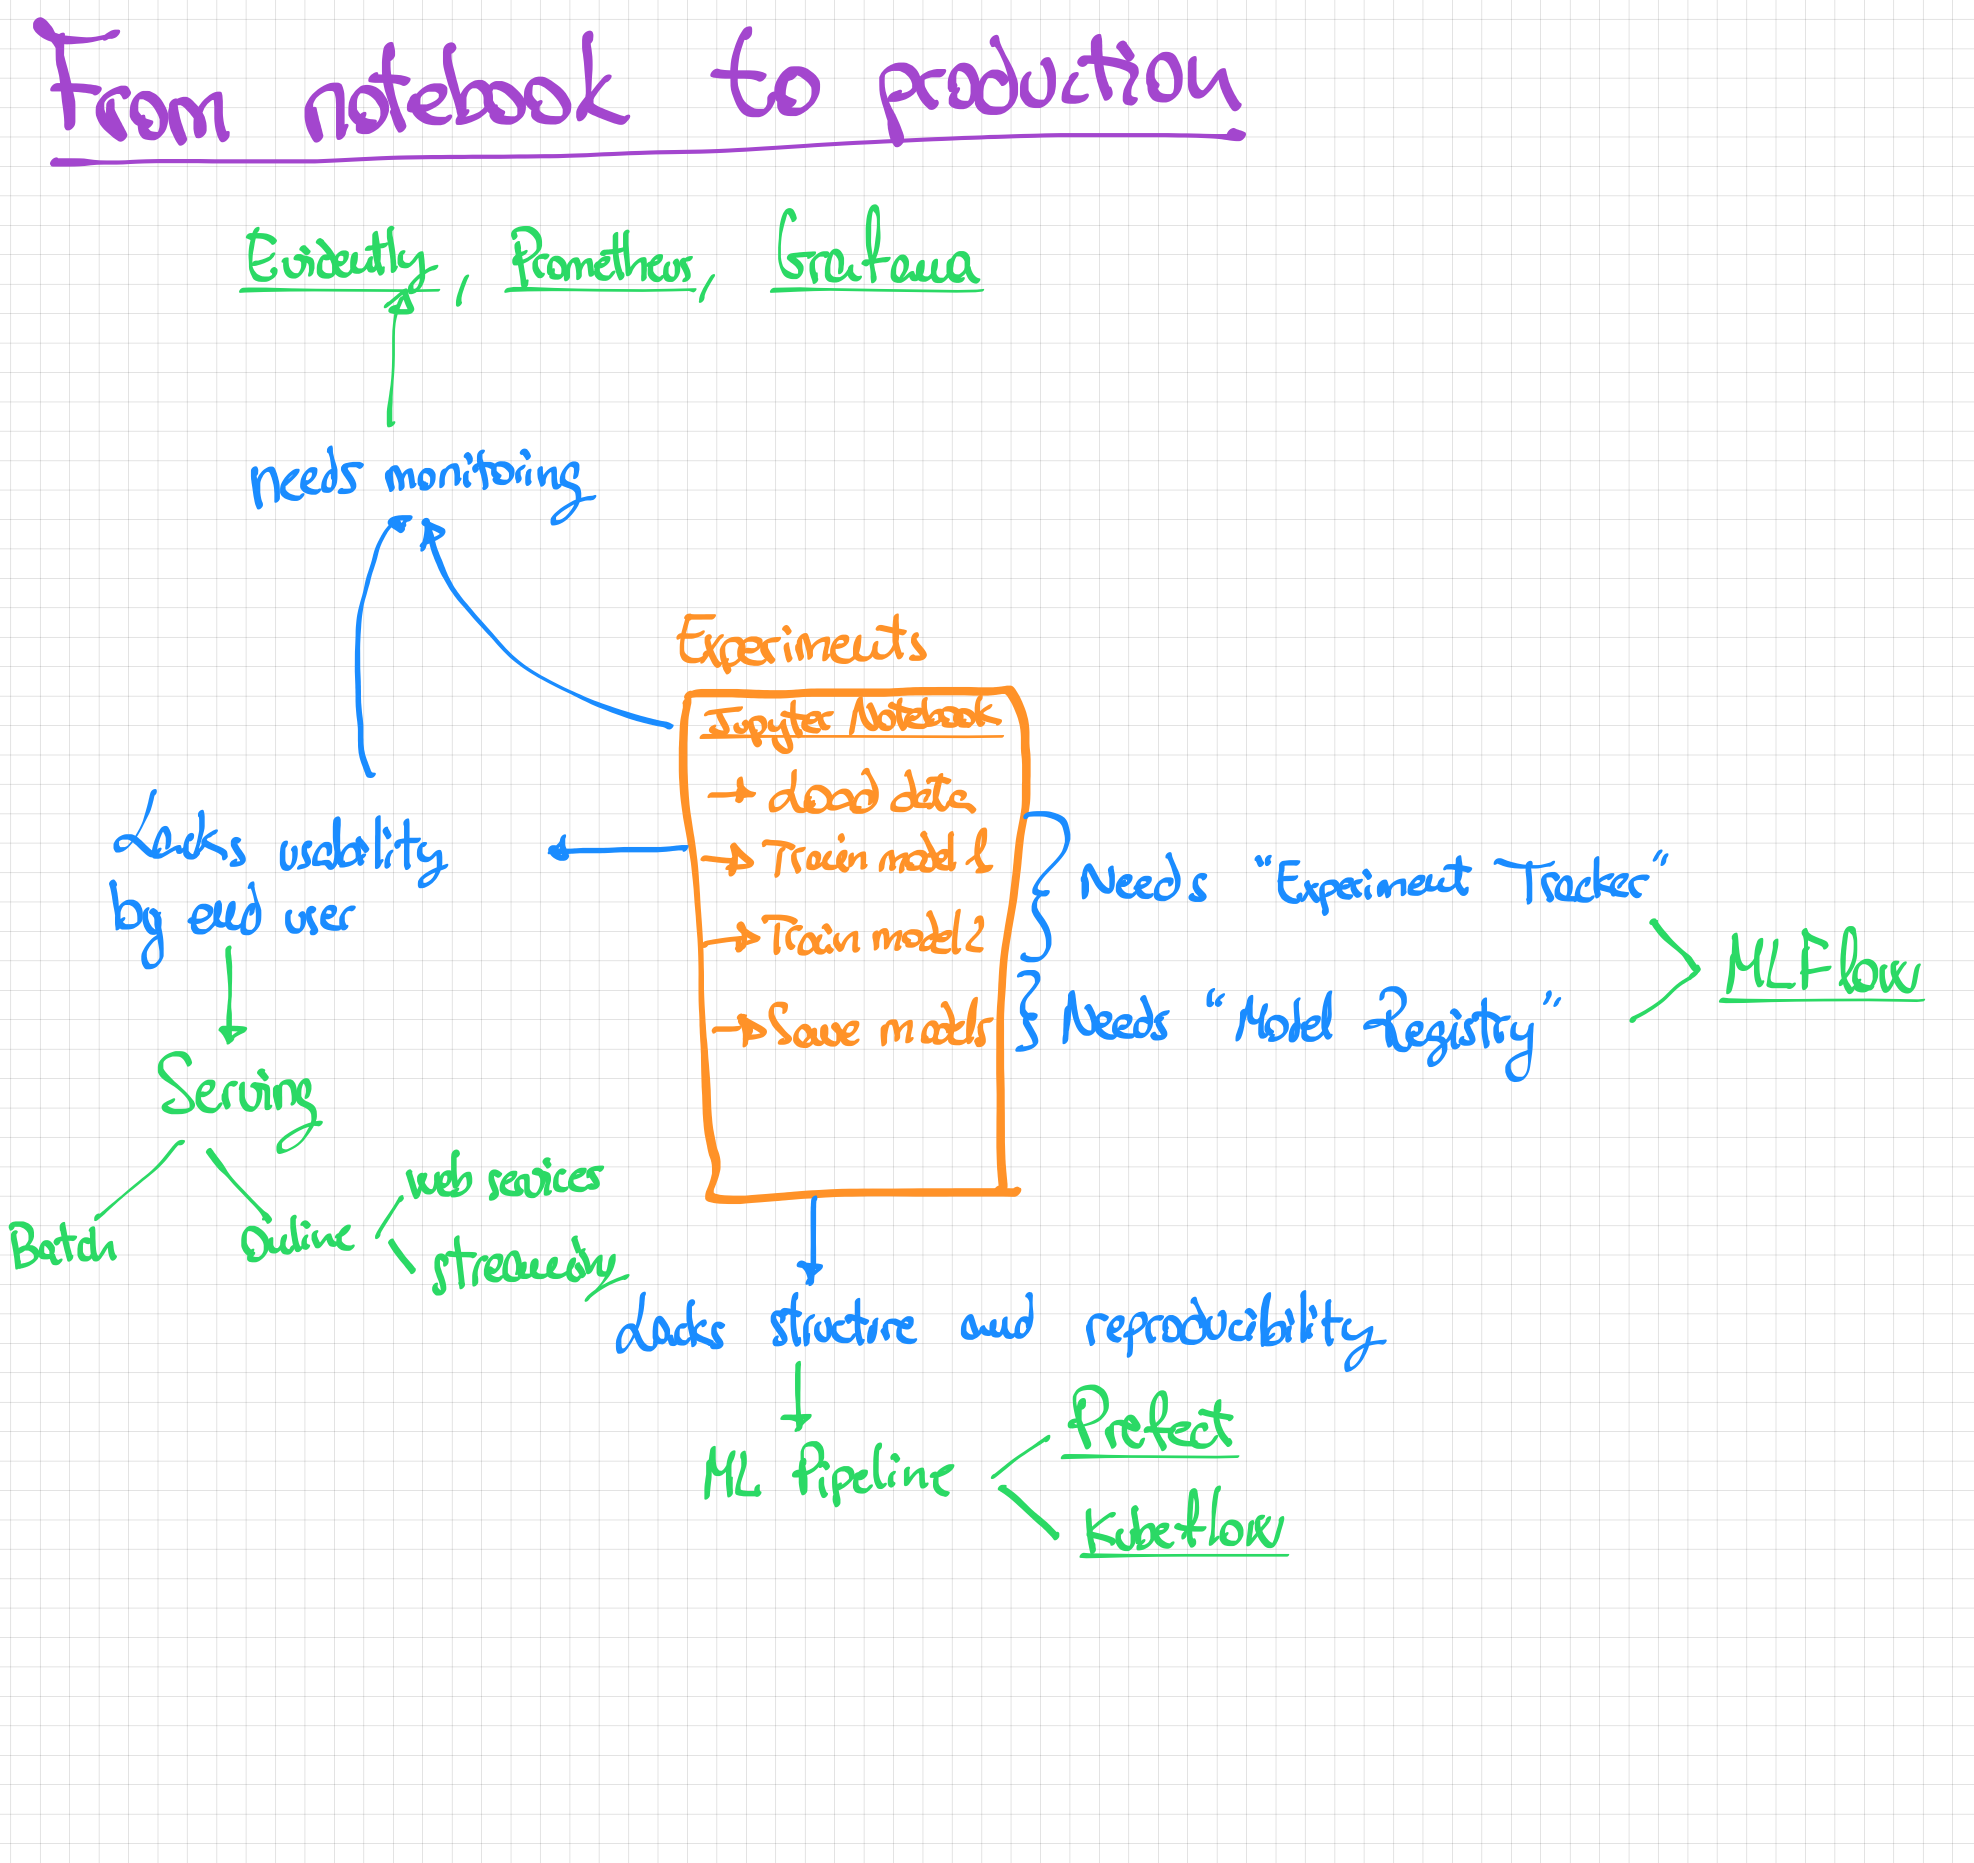 From notebook to production
Evidently, Prometheus, Grafana
needs monitoring
Experiments
Jupyter Notebook
→ Load data
→ Train model 1
→ Train model 2
→ Save models
Lacks usability
by end user
Needs "Experiment Tracker"
Needs "Model Registry"
MLFlow
Serving
Batch
Online
web services
streaming
Lacks structure and reproducibility
ML Pipeline
Prefect
Kubeflow